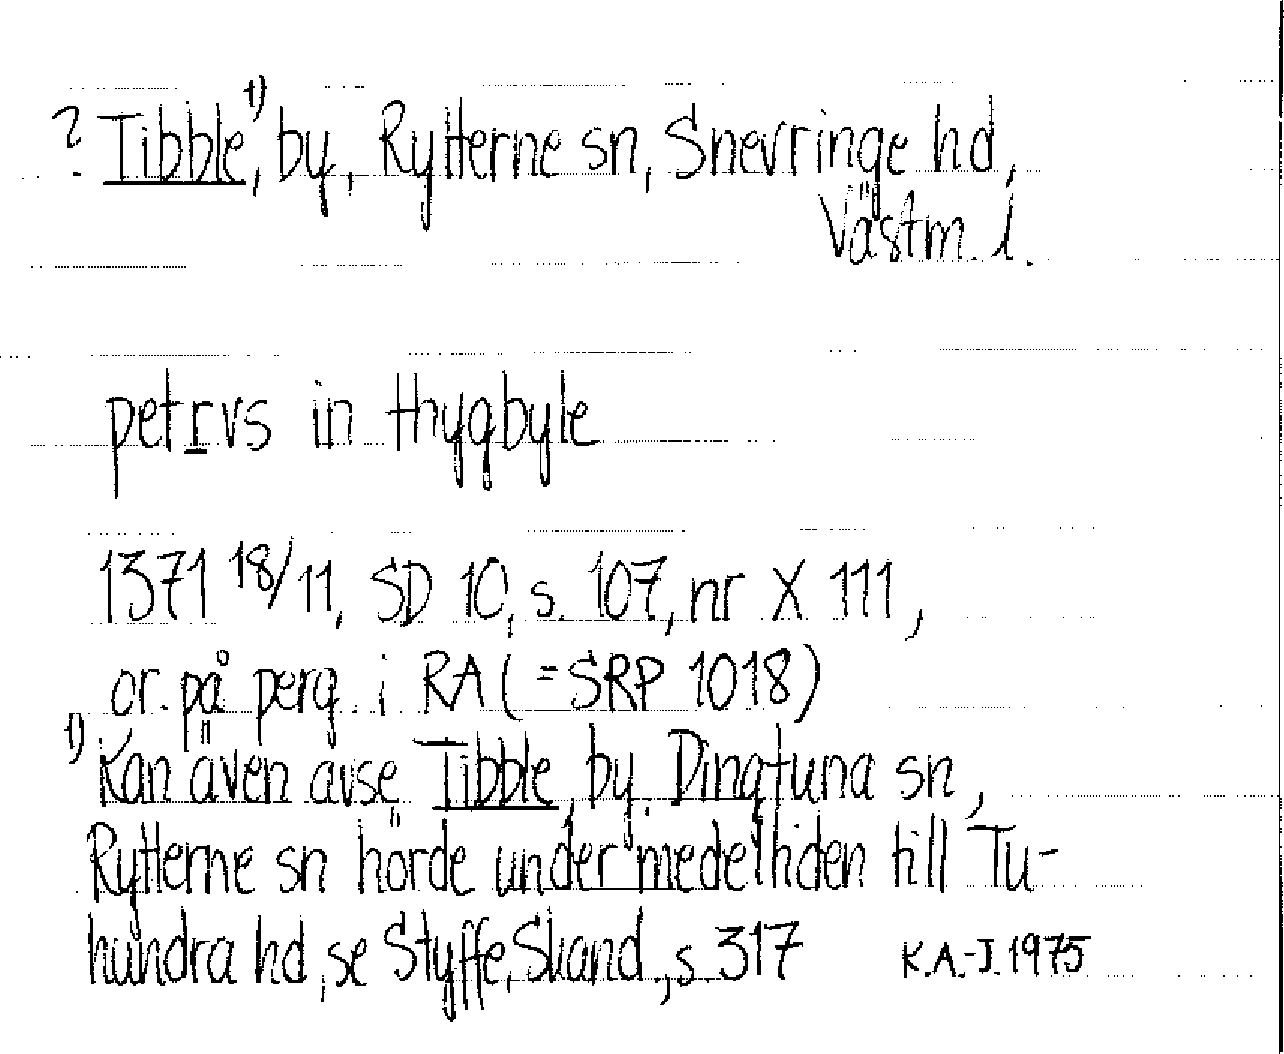 ? Tibble,¹⁾ by, Rytterne sn, Snevringe hd,
Västm. l.
petrvs in thygbyle
1371 18/11, SD 10, s. 107, nr X 111,
or. på perg. i RA (=SRP 1018)
1) Kan även avse Tibble, by, Dingtuna sn,
Rytterne sn hörde under medeltiden till Tu-
hundra hd, se Styffe, Skand., s. 317 K.A.-J. 1975